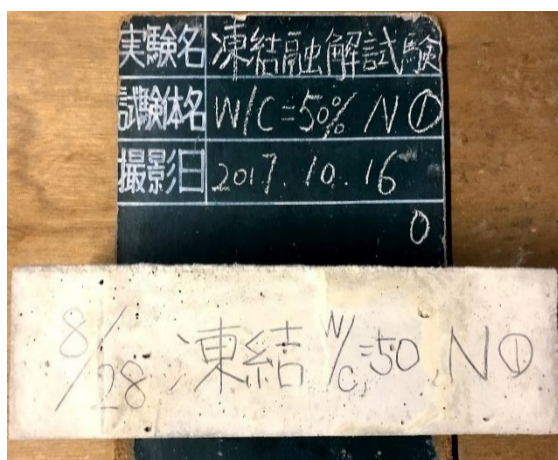 実験名 凍結融解試験
試験体名 W/C=50% N①
撮影日 2017.10.16
0
8/28 凍結 W/C=50 N①